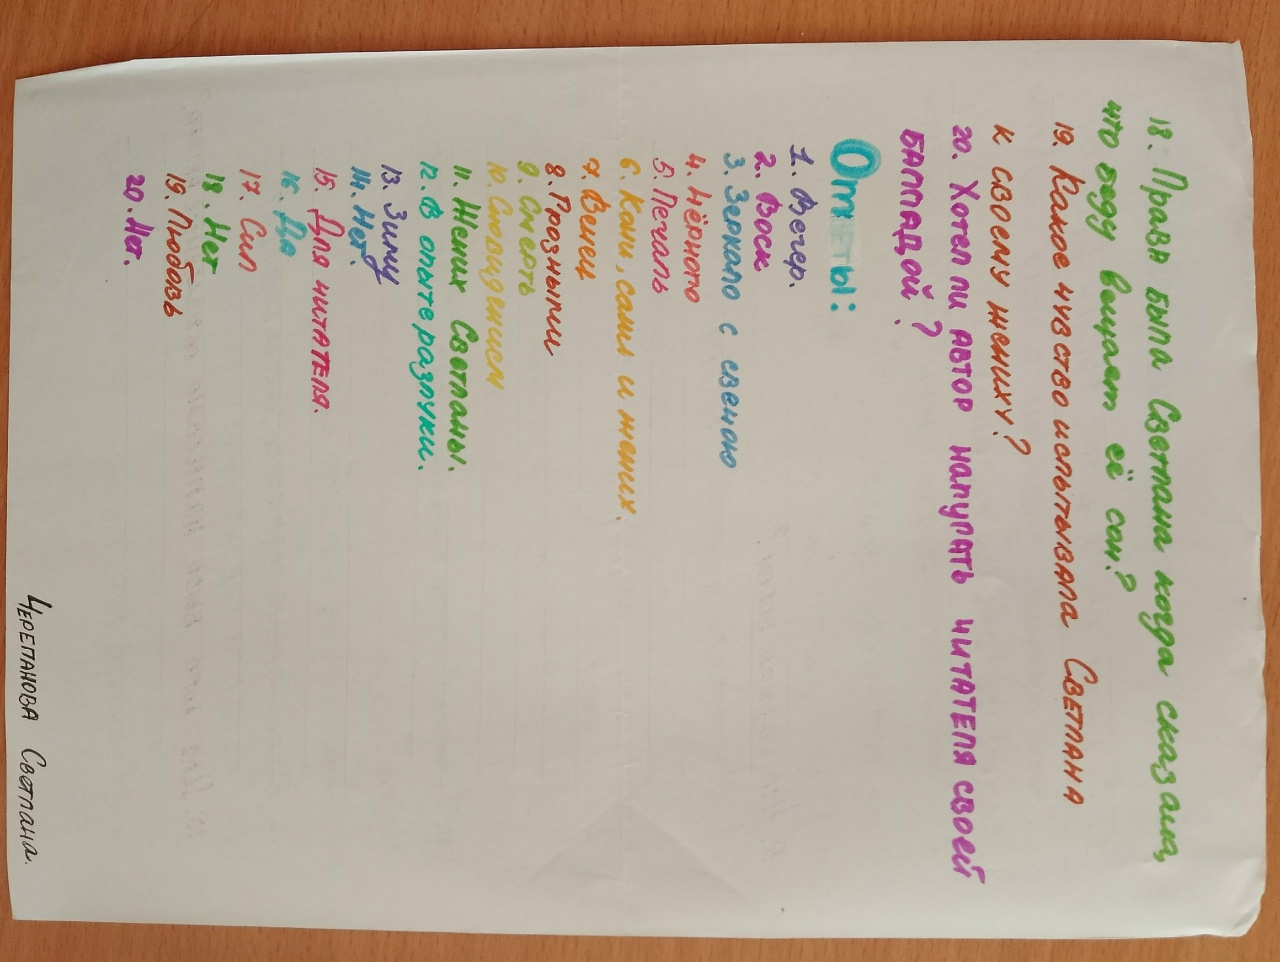 18. Права была Светлана когда сказала,
что беду вещает её сон?
19. Какое чувство испытывала Светлана
к своему жениху?
20. Хотел ли автор напугать читателя своей
балладой?
Ответы:
1. Вечер.
2. Воск
3. Зеркало с свечою
4. Чёрного
5. Печаль
6. Кони, сани и жених.
7. Венец
8. Грозными
9. Смерть
10. Сновидением
11. Жених Светланы.
12. В опыте разлуки.
13. Зиму
14. Нет.
15. Для читателя.
16. Да
17. Сил
18. Нет
19. Любовь
20. Нет.
Черепанова Светлана.